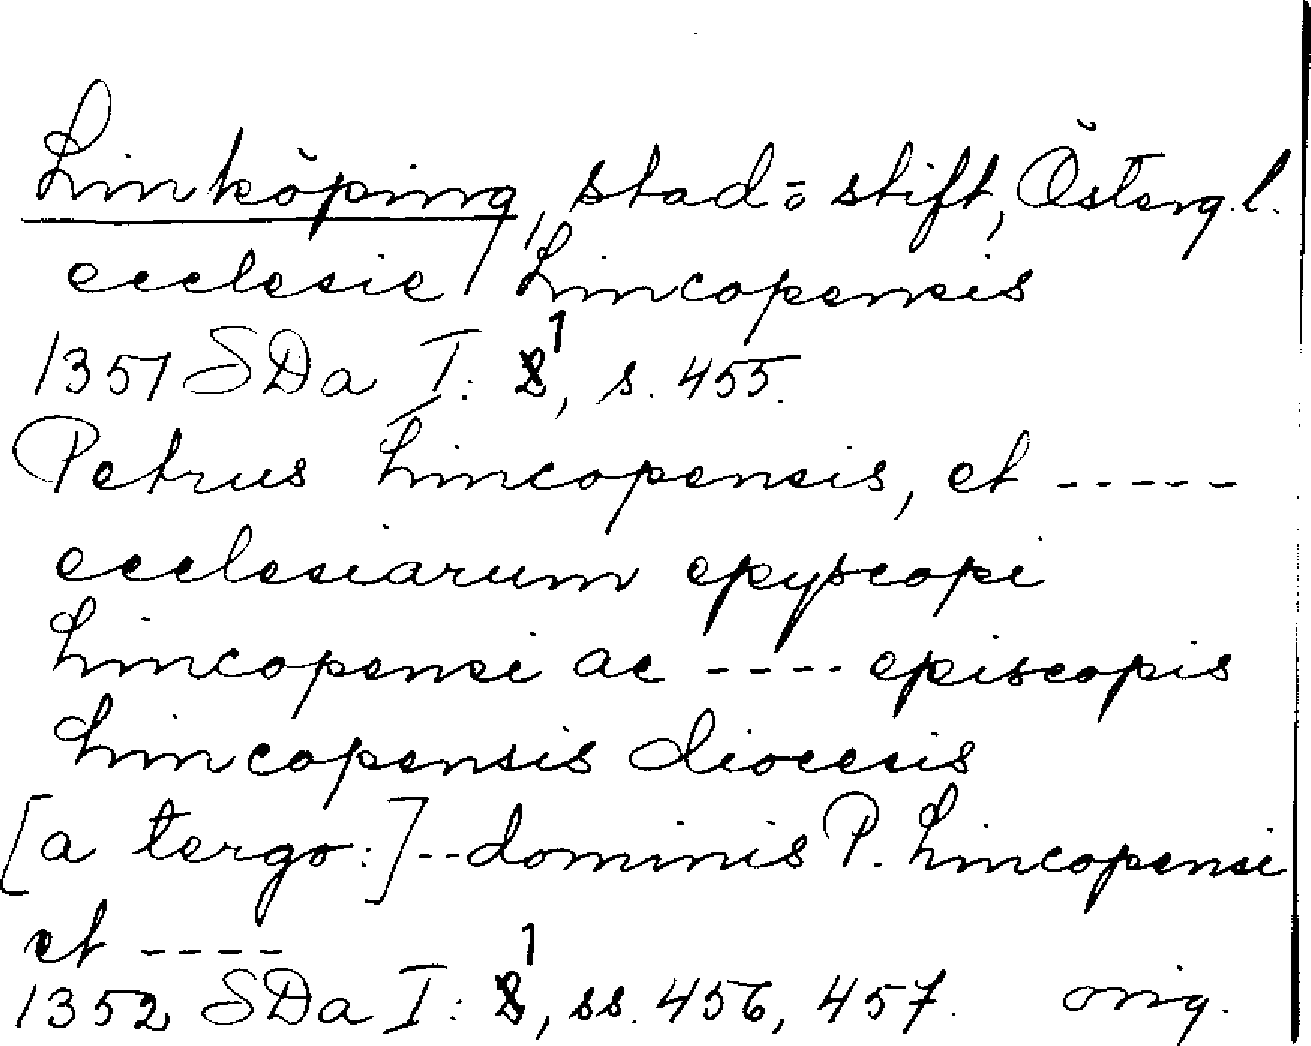 Linköping, stad o. stift, Östergl.
ecclesie Lincopensis
1351 SDa I: 1, s. 455.
Petrus Lincopensis, et -----
ecclesiarum epyscopi
Lincopensi ac ---- episcopis
Lincopensis diocesis
[a tergo:] -- dominis P. Lincopensi
et ----
1352 SDa I: 1, ss. 456, 457. orig.